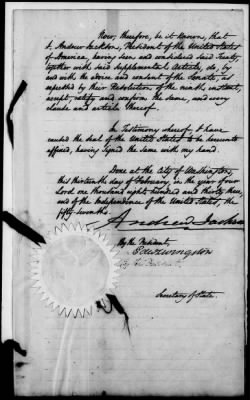 Now, therefore, be it known, that
I, Andrew Jackson, President of the United States
of America, having seen and considered said Treaty,
together with said supplemental Article, do, by
and with the advice and consent of the Senate, as
expressed by their Resolution of the ninth, instant,
accept, ratify and confirm the same, and every
clause and article thereof.
In Testimony whereof, I have
caused the Seal of the United States to be hereunto
affixed, having signed the same with my hand.
Done at the City of Washington,
this thirteenth day of February, in the year of our
Lord one thousand eight hundred and thirty three,
and of the Independence of the United States, the
fifty-seventh.
Andrew Jackson
By the President,
Edw Livingston
Secretary of State.